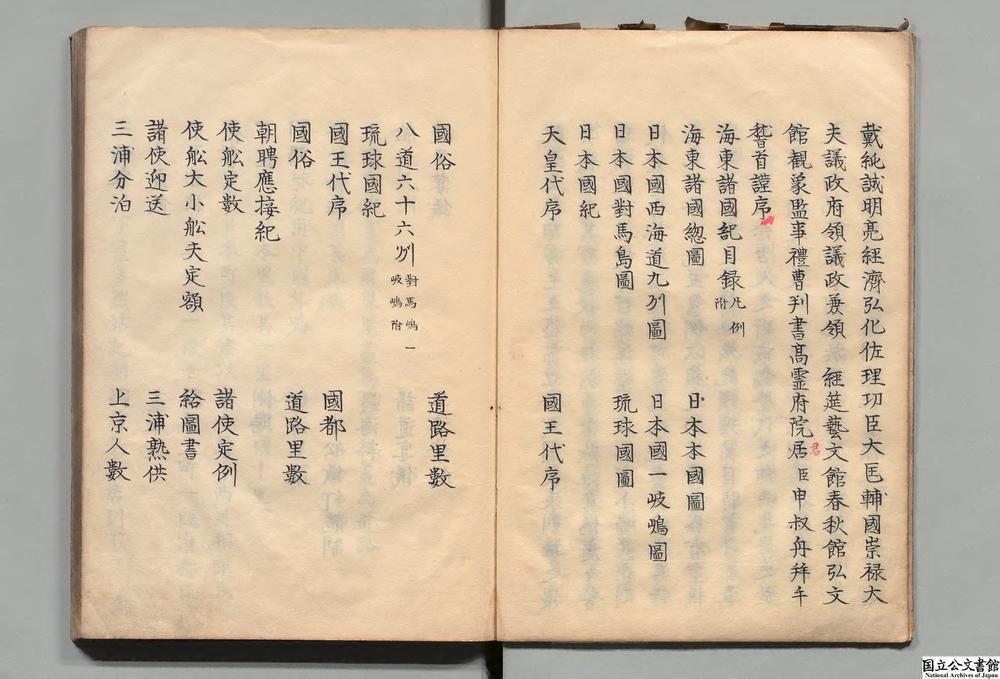 戴純誠明亮經濟弘化佐理功臣大匡輔國崇禄大
夫議政府領議政兼領 經筵藝文館春秋館弘文
館觀象監事禮曹判書高靈府院居君臣申叔舟拜手
稽首謹序
海東諸國記目録凡例附
海東諸國緫圖 日本本國圖
日本國西海道九州圖 日本國一岐嶋圖
日本國對馬島圖 琉球國圖
日本國紀
天皇代序 國王代序
國俗 道路里數
八道六十六州對馬嶋一岐嶋附
琉球國紀
國王代序 國都
國俗 道路里數
朝聘應接紀
使舩定數 諸使定例
使舩大小舩夫定額 給圖書
諸使迎送 三浦熟供
三浦分泊 上京人數
国立公文書館
National Archives of Japan